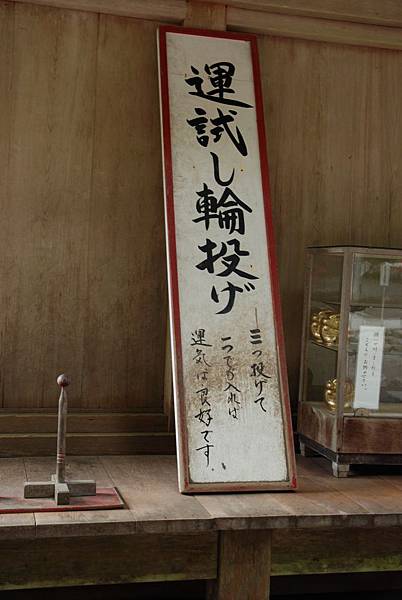 運試し輪投げ
三つ投げて
一つでも入れば
運気は良好です